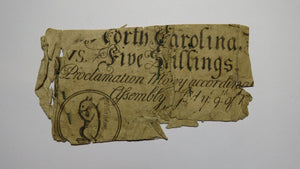 North Carolina.
15. Five Shillings
Proclamation Money according
Assembly